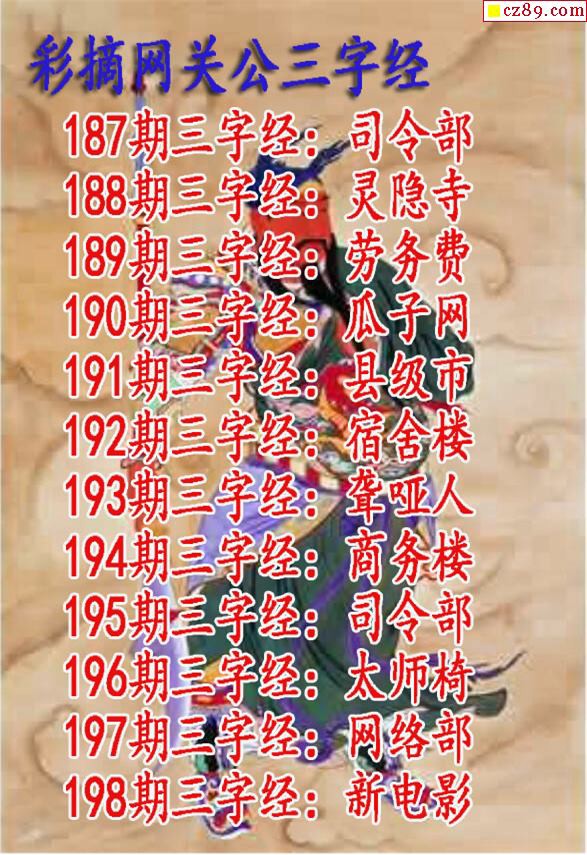 cz89.com
彩摘网关公三字经
187期三字经：司令部
188期三字经：灵隐寺
189期三字经：劳务费
190期三字经：瓜子网
191期三字经：县级市
192期三字经：宿舍楼
193期三字经：聋哑人
194期三字经：商务楼
195期三字经：司令部
196期三字经：太师椅
197期三字经：网络部
198期三字经：新电影